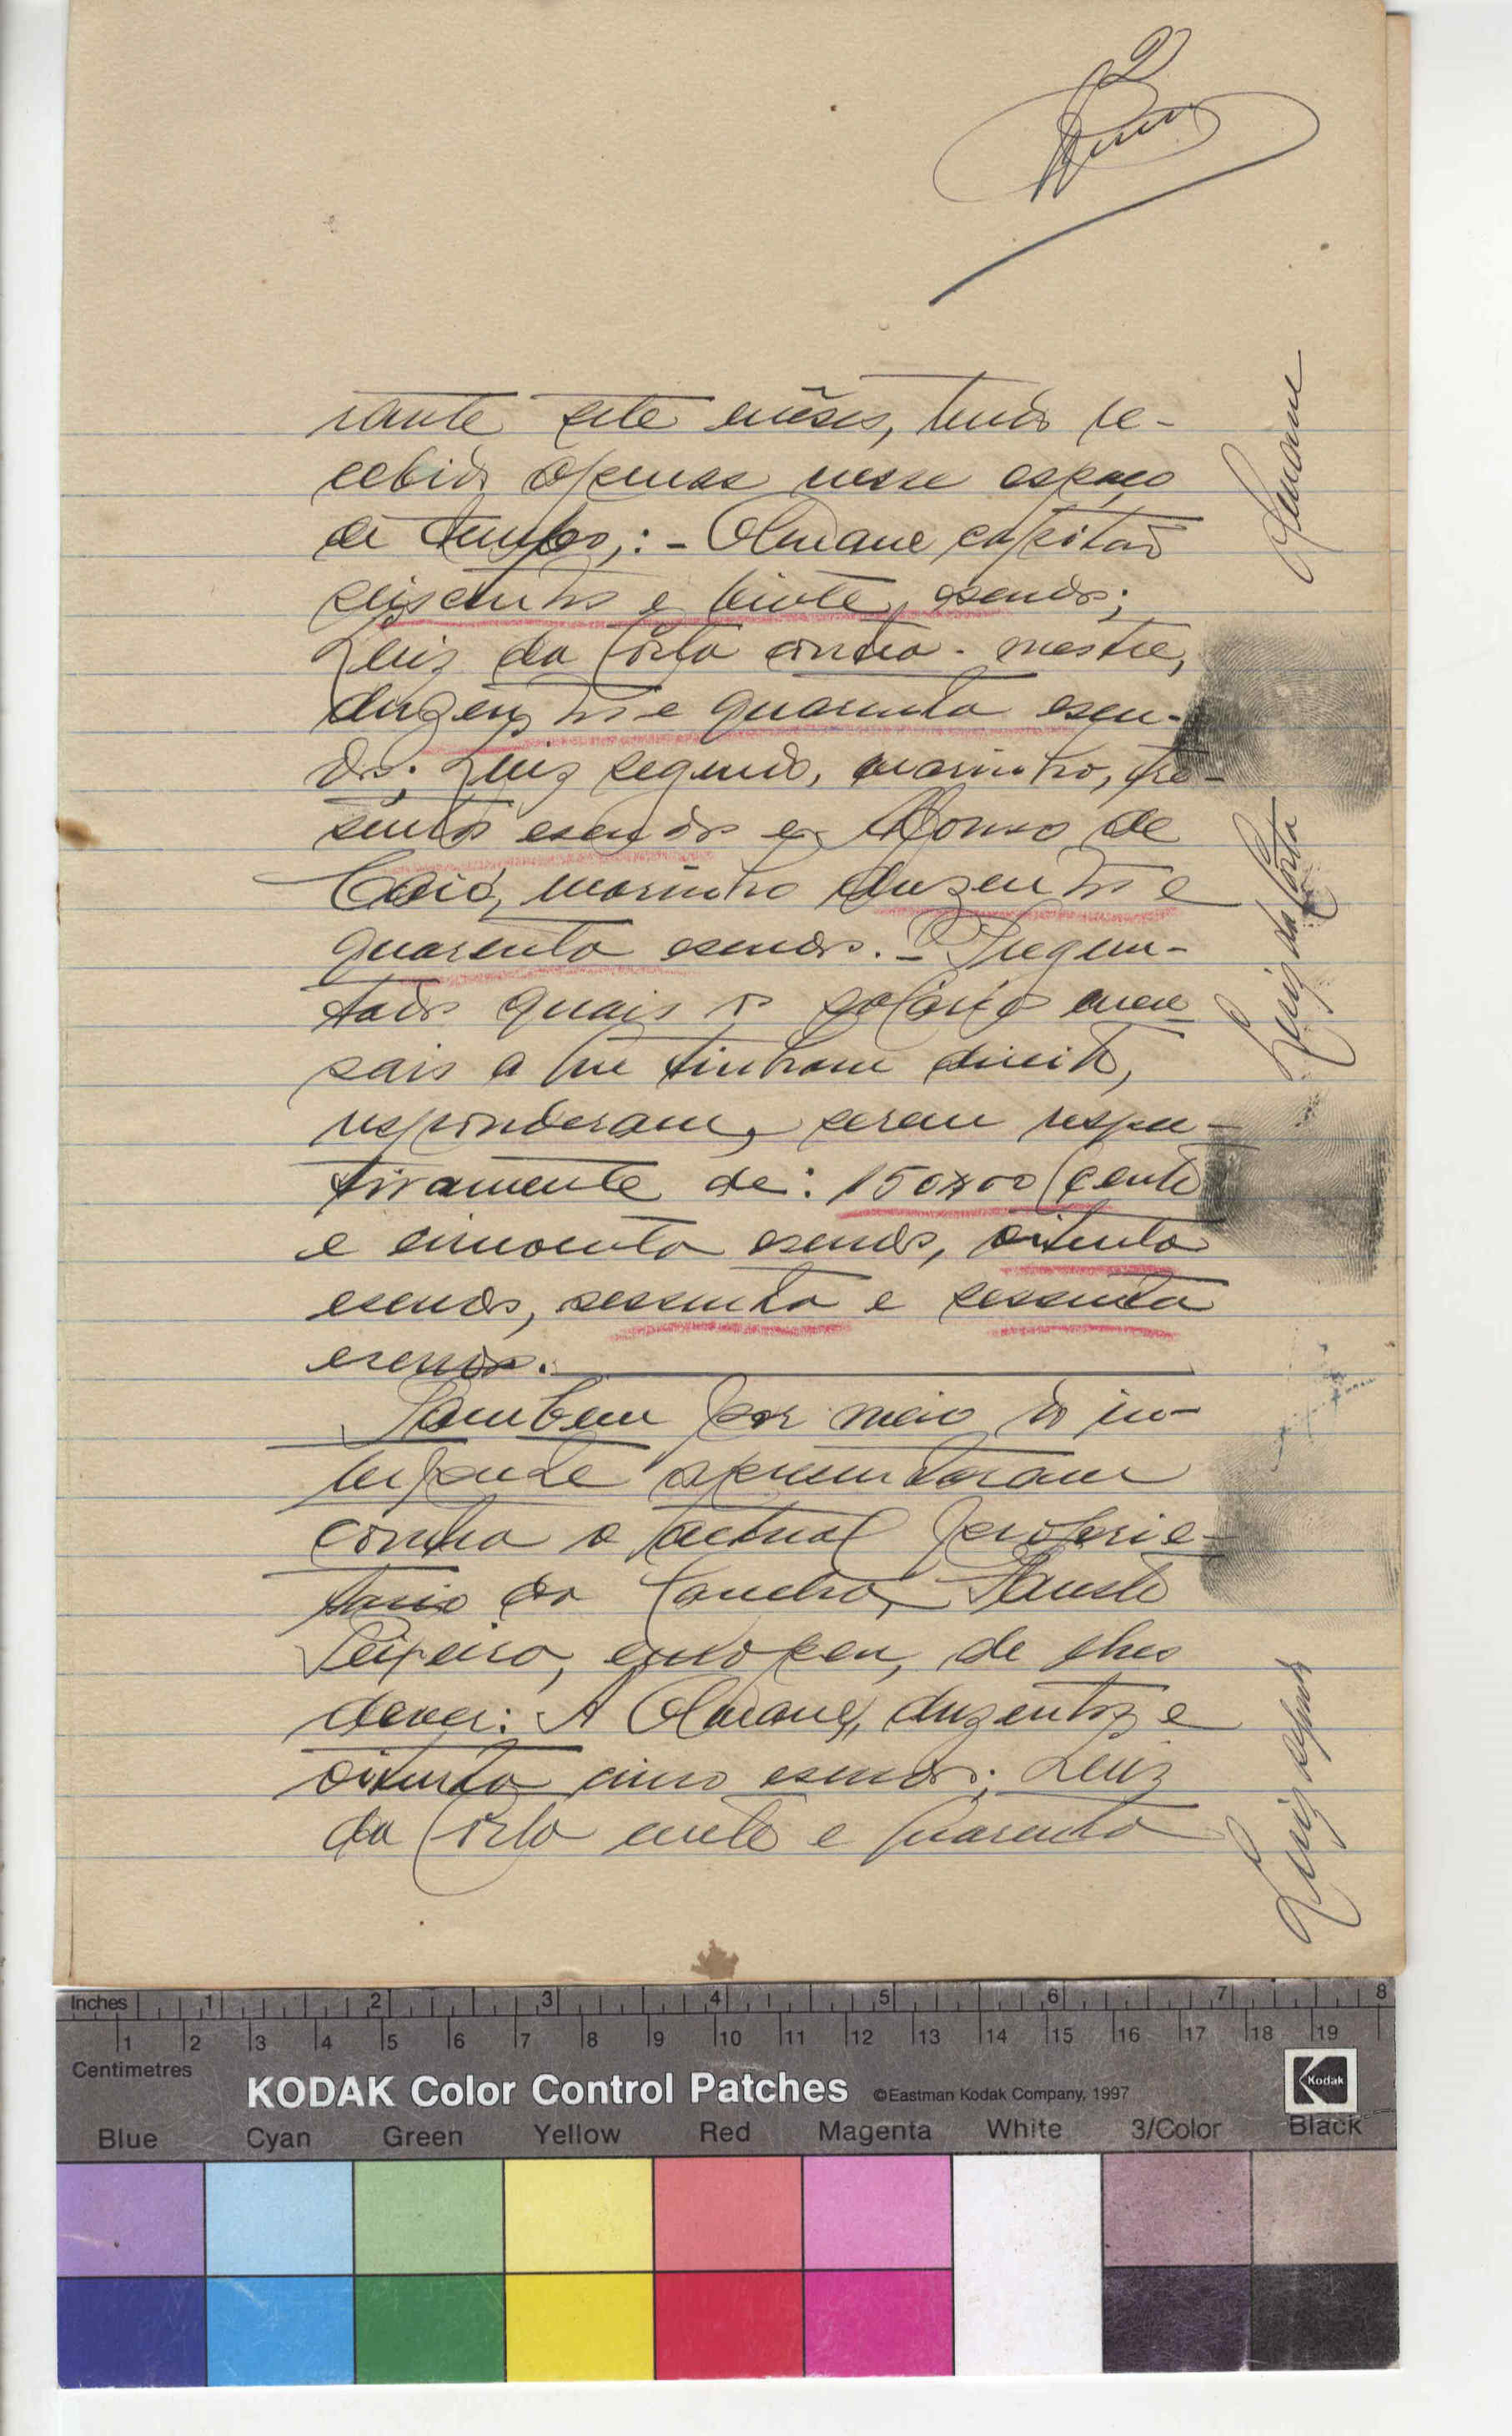 2
rante sete mêses, tendo re-
cebido apenas nesse espaço
de tempo,: - Osmane capitão
seiscentos e vinte, escudos;
Luiz da Costa contra-mestre,
duzentos e quarenta escu-
dos; Luiz segundo, marinheiro, tre-
sentos escudos e, Afonso de
Caió, marinheiro duzentos e
quarenta escudos. - Pregun-
tados quais os salários men
sais a que tinham direito,
responderam, serem respec-
tivamente de: 150$00 (cento
e cincoenta escudos, oitenta
escudos, sessenta e sessenta
escudos.
Tambem por meio do in-
terprete apresentaram
contra o actual proprie-
tario da lancha, Fausto
Teixeira, europeu, de lhes
dever: A Osmane, duzentos e
oitenta cinco escudos; Luiz
da Costa cento e quarenta
Osmane
Luiz da Costa
Luiz segundo
Inches 1 2 3 4 5 6 7 8
1 2 3 4 5 6 7 8 9 10 11 12 13 14 15 16 17 18 19
Centimetres
KODAK Color Control Patches ©Eastman Kodak Company, 1997
Kodak
Blue Cyan Green Yellow Red Magenta White 3/Color Black